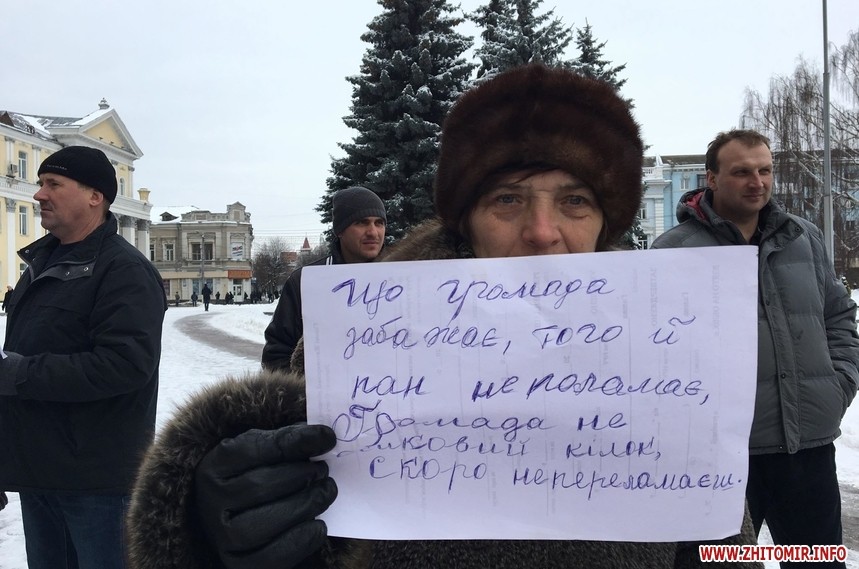 Що громада
забажає, того й
пан неполамає,
Громада не
лковий кілок,
скоро непереламаєш.
WWW.ZHITOMIR.INFO